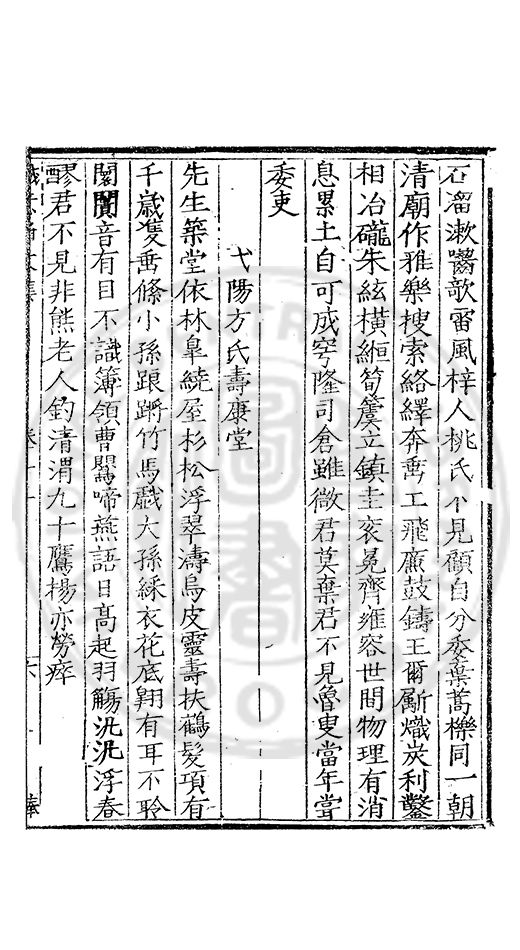 石溜漱齧欹雷風梓人桃氏不見顧自分委棄蒿櫟同一朝
清廟作雅樂搜索絡繹奔啬工飛廉鼓鑄王爾斸熾炭利鑿
相冶礲朱絃橫絙筍簴立鎮圭衮冕齊雍容世間物理有消
息累土自可成穹隆司倉雖微君莫棄君不見魯叟當年甞
委吏
弋陽方氏壽康堂
先生築堂依林皐繞屋杉松浮翠濤烏皮靈壽扶鶴髮項有
千嵗雙垂絛小孫踉蹡竹馬戲大孫綵衣花底翱有耳不聆
闤闠音有目不識簿領曹鸎啼燕語日髙起羽觴汎汎浮春
醪君不見非熊老人釣清渭九十鷹楊亦勞瘁